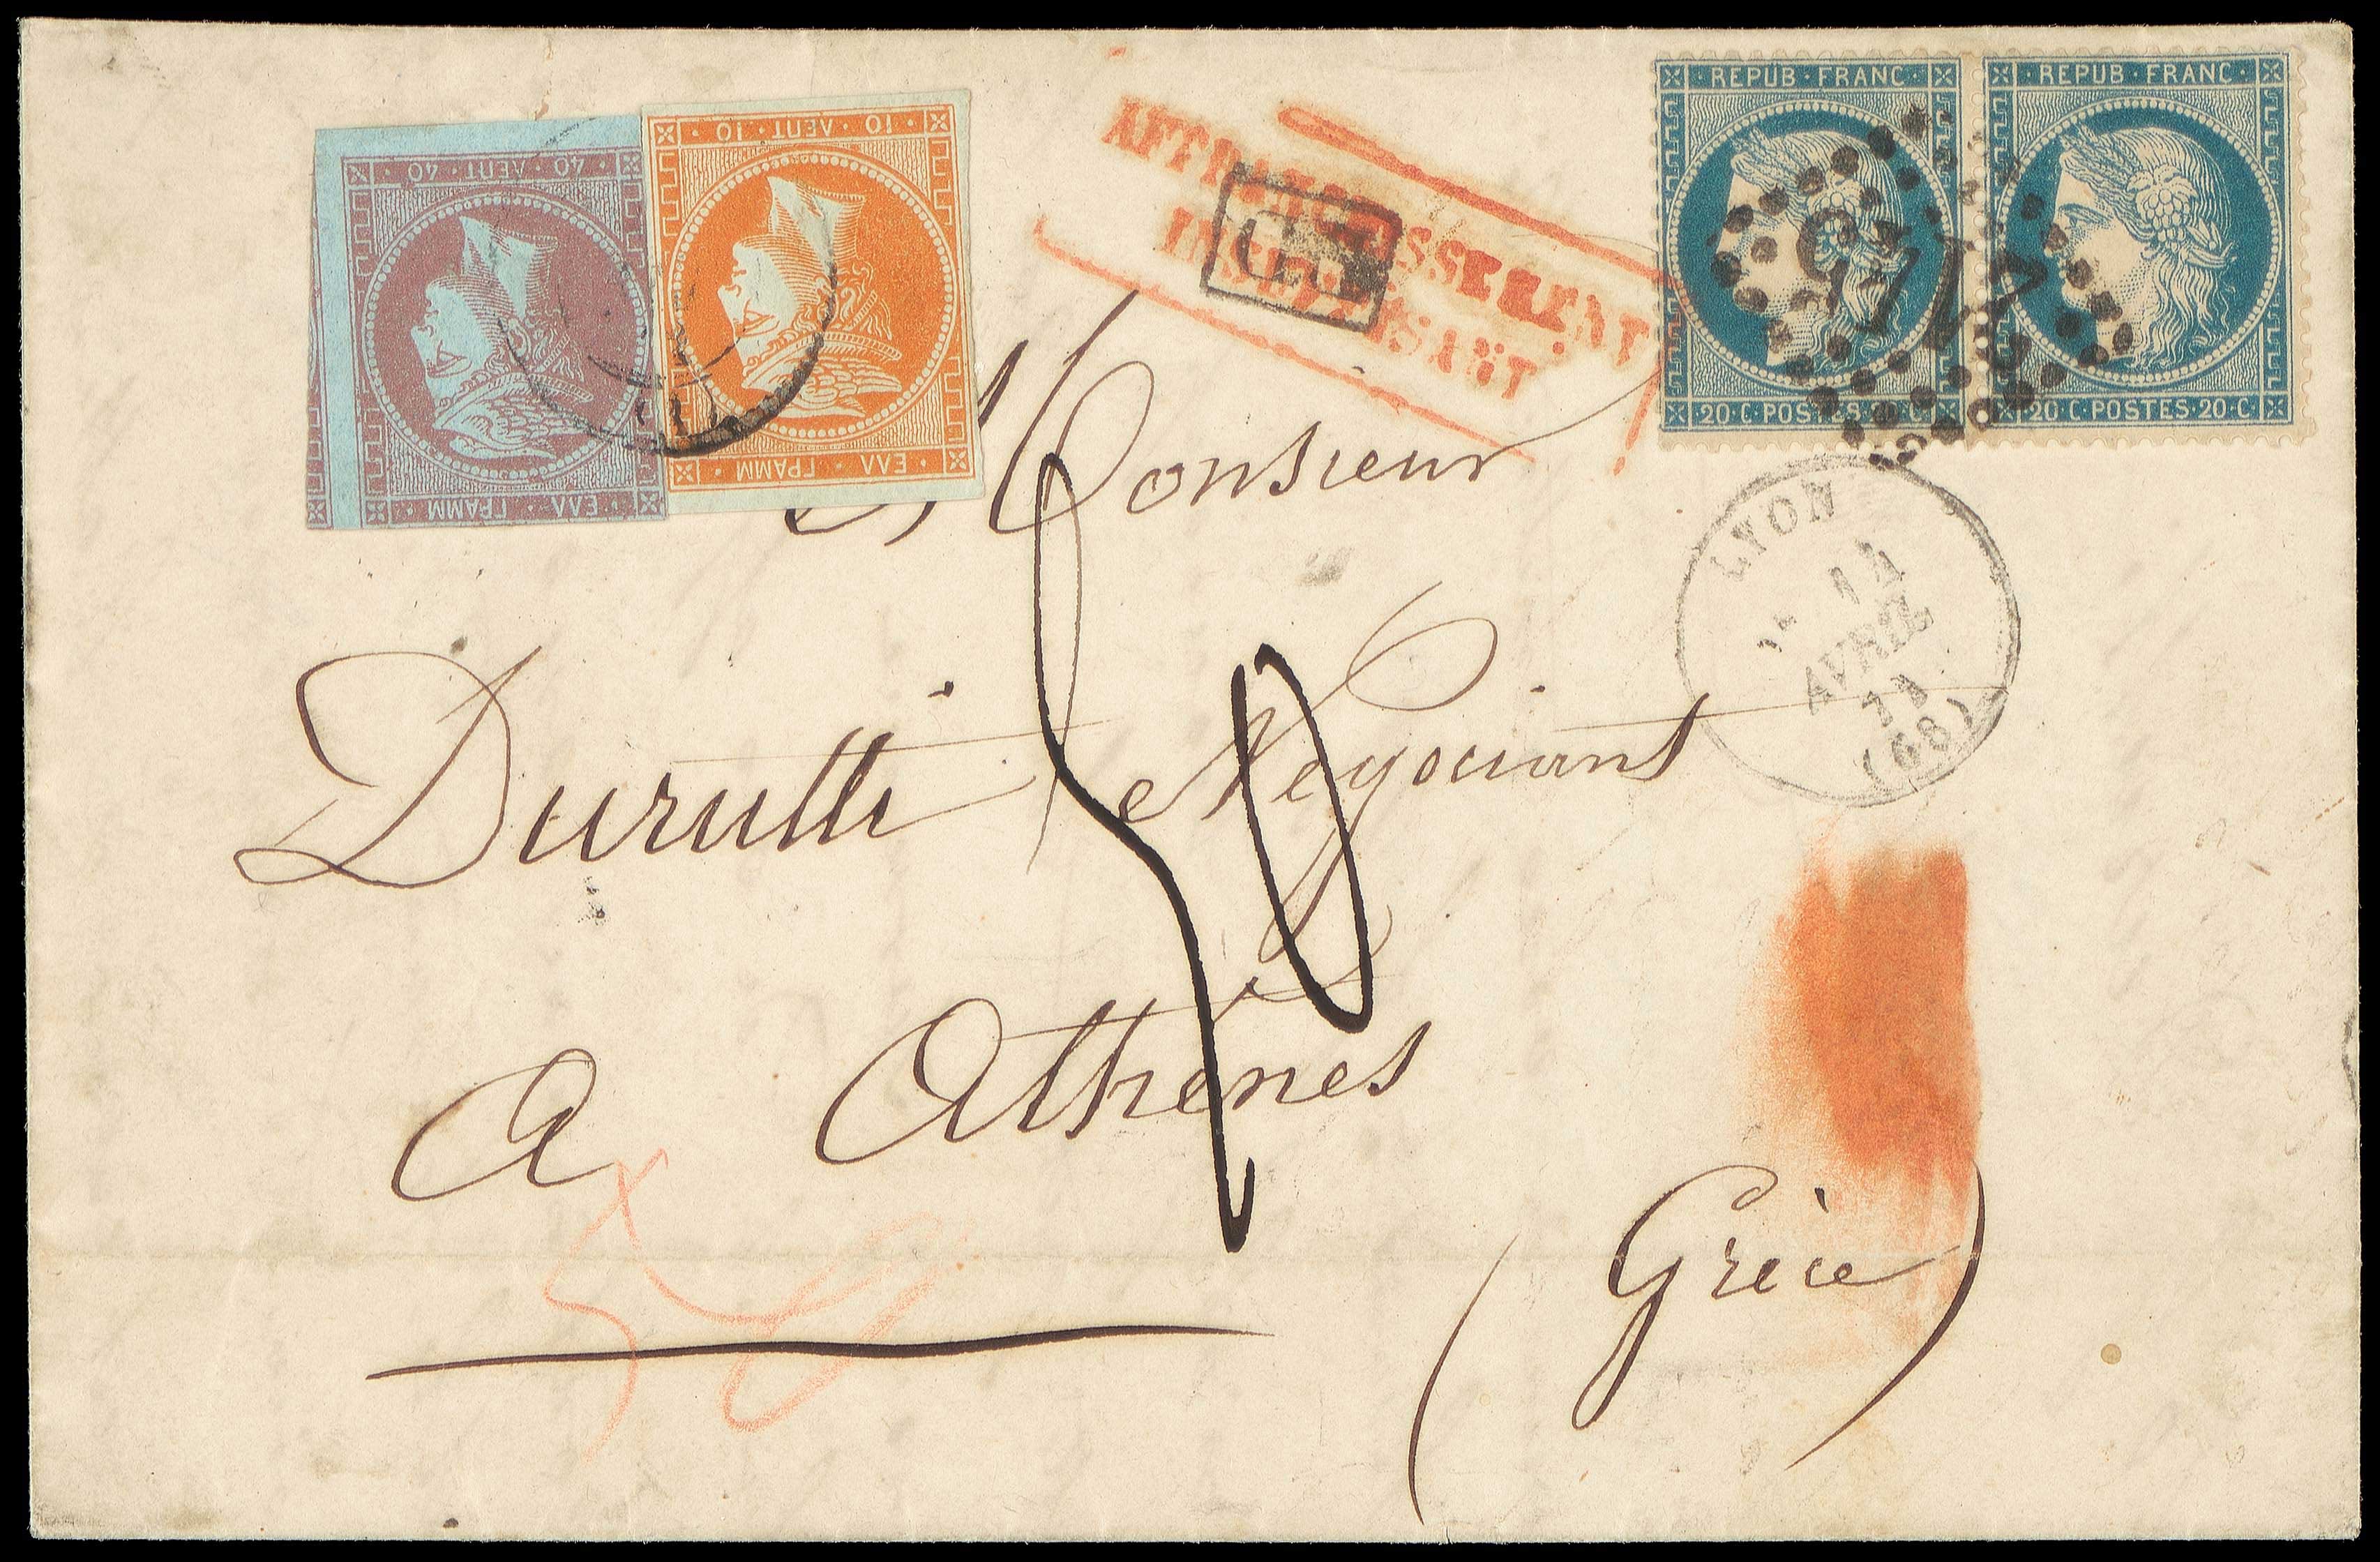 40 · ΛΕΠΤ · 40
ΕΛΛ · ΓΡΑΜΜ
10 · ΛΕΠΤ · 10
ΕΛΛ · ΓΡΑΜΜ
AFFRANCHISSEMENT
INSUFFISANT
PD
REPUB · FRANC ·
20 · C · POSTES · 20 · C
REPUB · FRANC ·
20 · C · POSTES · 20 · C
LYON
14
AVRIL
71
(68)
Monsieur
Durutti Negociant
A Athènes
(Grèce)
50